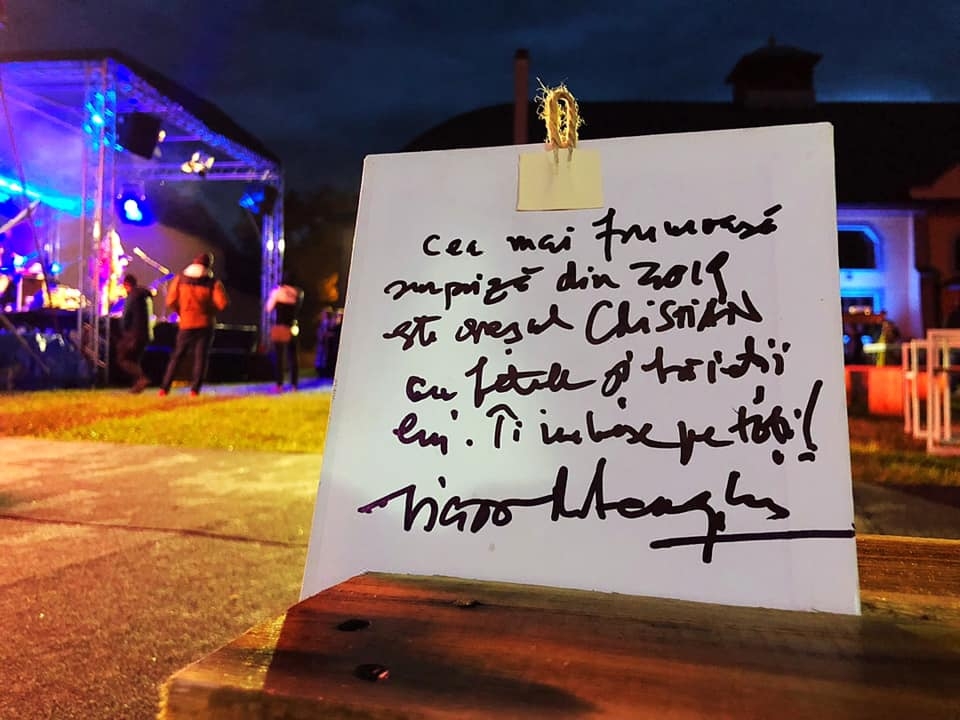 cea mai frumoasă
surpriză din 2019
este orașul CRISTIAN
cu fetele și băieții
lui. Îi iubesc pe toți!